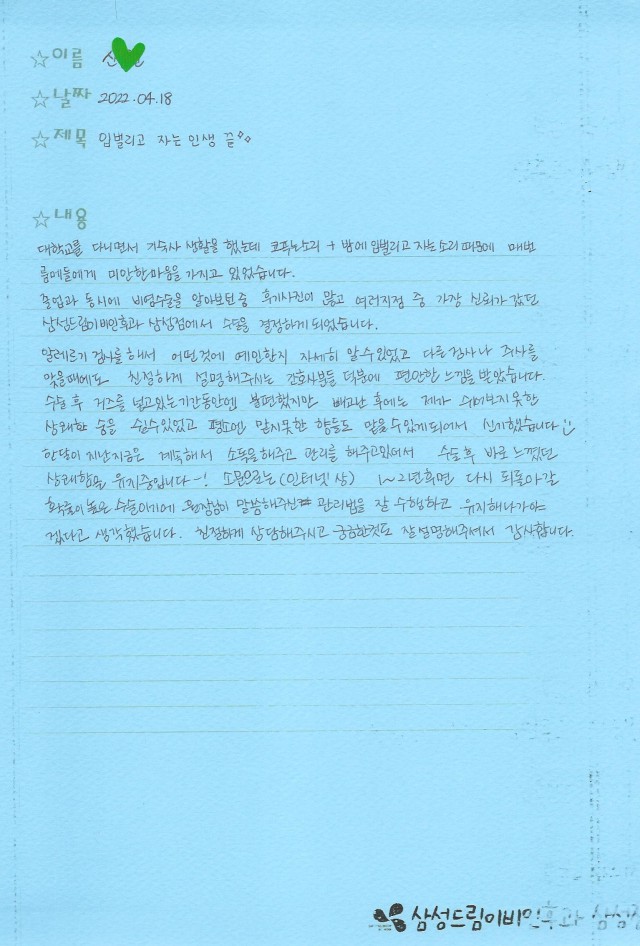 ☆이름
☆날짜 2022.04.18
☆제목 입벌리고 자는 인생 끝
☆내용
대학교를 다니면서 기숙사 생활을 했는데 코푸는소리 + 밤에 입벌리고 자는소리 때문에 매번
룸메들에게 미안한마음을 가지고 있었습니다.
졸업과 동시에 비염수술을 알아보던 중 후기사진이 많고 여러지점 중 가장 신뢰가 갔던
삼성드림이비인후과 삼성점에서 수술을 결정하게되었습니다.
알레르기 검사를 해서 어떤것에 예민한지 자세히 알수있었고 다른검사나 주사를
맞을때에도 친절하게 설명해주시는 간호사분들 덕분에 편안한 느낌을 받았습니다.
수술 후 거즈를 넣고있는기간동안엔 불편했지만 빼고난 후에는 제가 쉬어보지 못한
상쾌한 숨을 쉴수있었고 평소엔 맡지못한 향들도 맡을수있게되어서 신기했습니다
한달이 지난지금은 계속해서 소독을해주고 관리를 해주고있어서 수술후 바로 느꼈던
상쾌함을 유지중입니다~! 소문으로는 (인터넷 상) 1~2년후면 다시 되돌아갈
확률이 높은 수술이기에 원장님이 말씀해주신 관리법을 잘 수행하고 유지해나가야
겠다고 생각했습니다. 친절하게 상담해주시고 궁금한것도 잘설명해주셔서 감사합니다.
삼성드림이비인후과 삼성